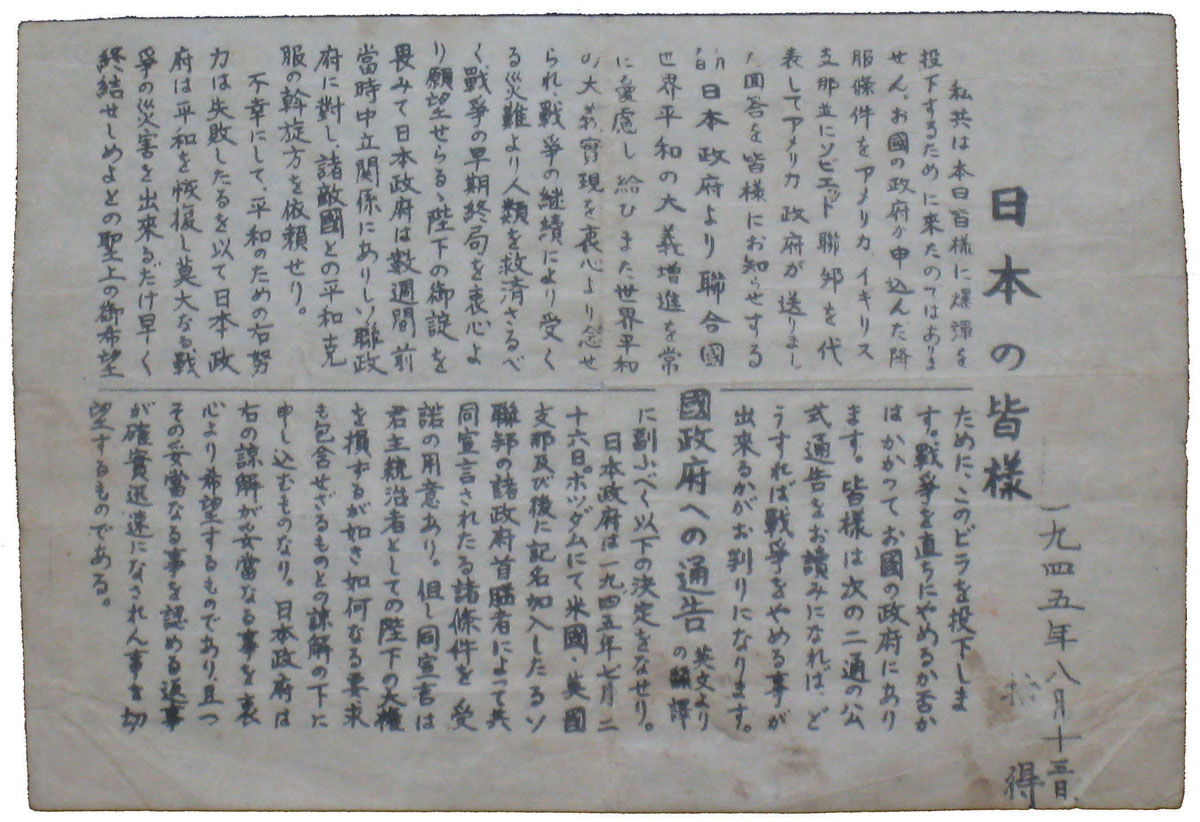 日本の皆様
一九四五年八月十三日、
拾得
私共は本日皆様に爆彈を
投下するために来たのではありま
せん。お國の政府が申込んだ降
服條件をアメリカ イギリス
支那並にソビエット聯邦を代
表してアメリカ政府が送りまし
た回答を皆様にお知らせする
ために、このビラを投下しま
す。戰爭を直ちにやめるか否か
はかかつてお國の政府にあり
ます。皆様は次の二通の公
式通告をお讀みになれば、ど
うすれば戰爭をやめる事が
出來るかがお判りになります。
日本政府より聯合國
國政府への通告 英文より
の飜譯
世界平和の大義増進を常
に憂慮し給ひまた世界平和
の大義實現を衷心より念せ
られ戰爭の継続により受く
る災難より人類を救済さるべ
く戰爭の早期終局を衷心よ
り願望せらるゝ陛下の御諚を
畏みて日本政府は数週間前
當時中立関係にありしソ聯政
府に對し、諸敵國との平和克
服の斡旋方を依頼せり。
不幸にして、平和のための右努
力は失敗したるを以て日本政
府は平和を恢復し莫大なる戰
爭の災害を出来るだけ早く
終結せしめよとの聖上の御希望
に副ふべく以下の決定をなせり。
日本政府は一九四五年七月二
十六日ポツダムにて米國・英國
支那及び後に記名加入したるソ
聯邦の諸政府首脳者によって共
同宣言されたる諸條件を受
諾の用意あり。但し同宣言は
君主統治者としての陛下の大權
を損ずるが如き如何なる要求
も包含せざるものとの諒解の下に
申し込むものなり。日本政府は
右の諒解が妥當なる事を衷
心より希望するものであり、且つ
その妥當なる事を認める返事
が確實迅速になされん事を切
望するものである。